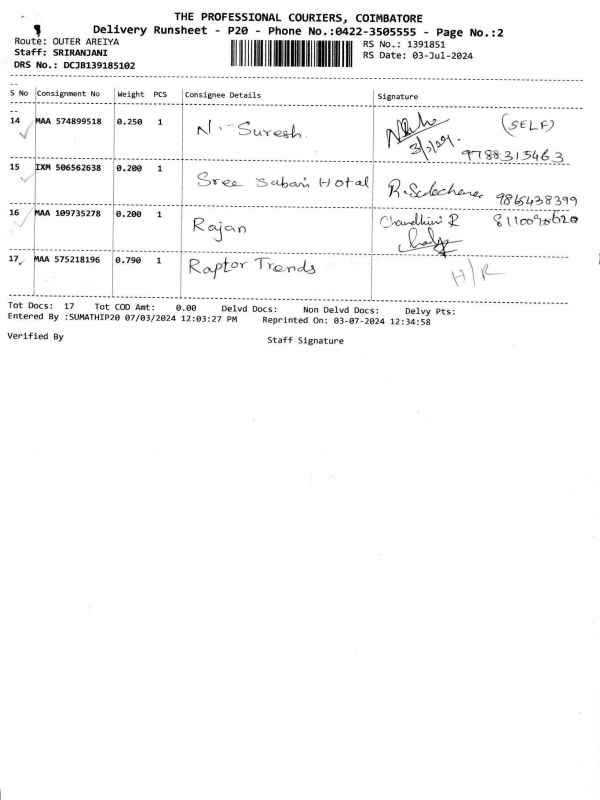 THE PROFESSIONAL COURIERS, COIMBATORE
Delivery Runsheet - P20 - Phone No.:0422-3505555 - Page No.:2
Route: OUTER AREIYA
RS No.: 1391851
Staff: SRIRANJANI
RS Date: 03-Jul-2024
DRS No.: DCJB139185102
S No Consignment No Weight PCS Consignee Details Signature
14 MAA 574899518 0.250 1 N. Suresh (SELF)
9788315463
15 IXM 506562638 0.200 1 Sree Sabari Hotal 9865438399
16 MAA 109735278 0.200 1 Rajan
17 MAA 575218196 0.790 1 Raptor Trends H/R
Tot Docs: 17 Tot COD Amt: 0.00 Delvd Docs: Non Delvd Docs: Delvy Pts:
Entered By :SUMATHIP20 07/03/2024 12:03:27 PM Reprinted On: 03-07-2024 12:34:58
Verified By Staff Signature